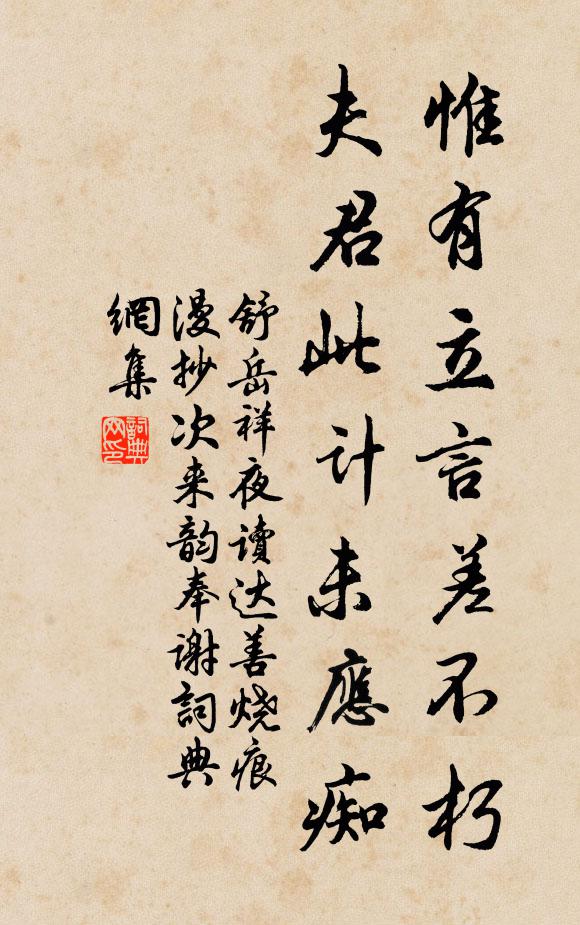 惟有立言差不朽
夫君此计未應痴
舒岳祥夜讀达善烧痕
漫抄次来韵奉谢詞典
網集
詞典網印